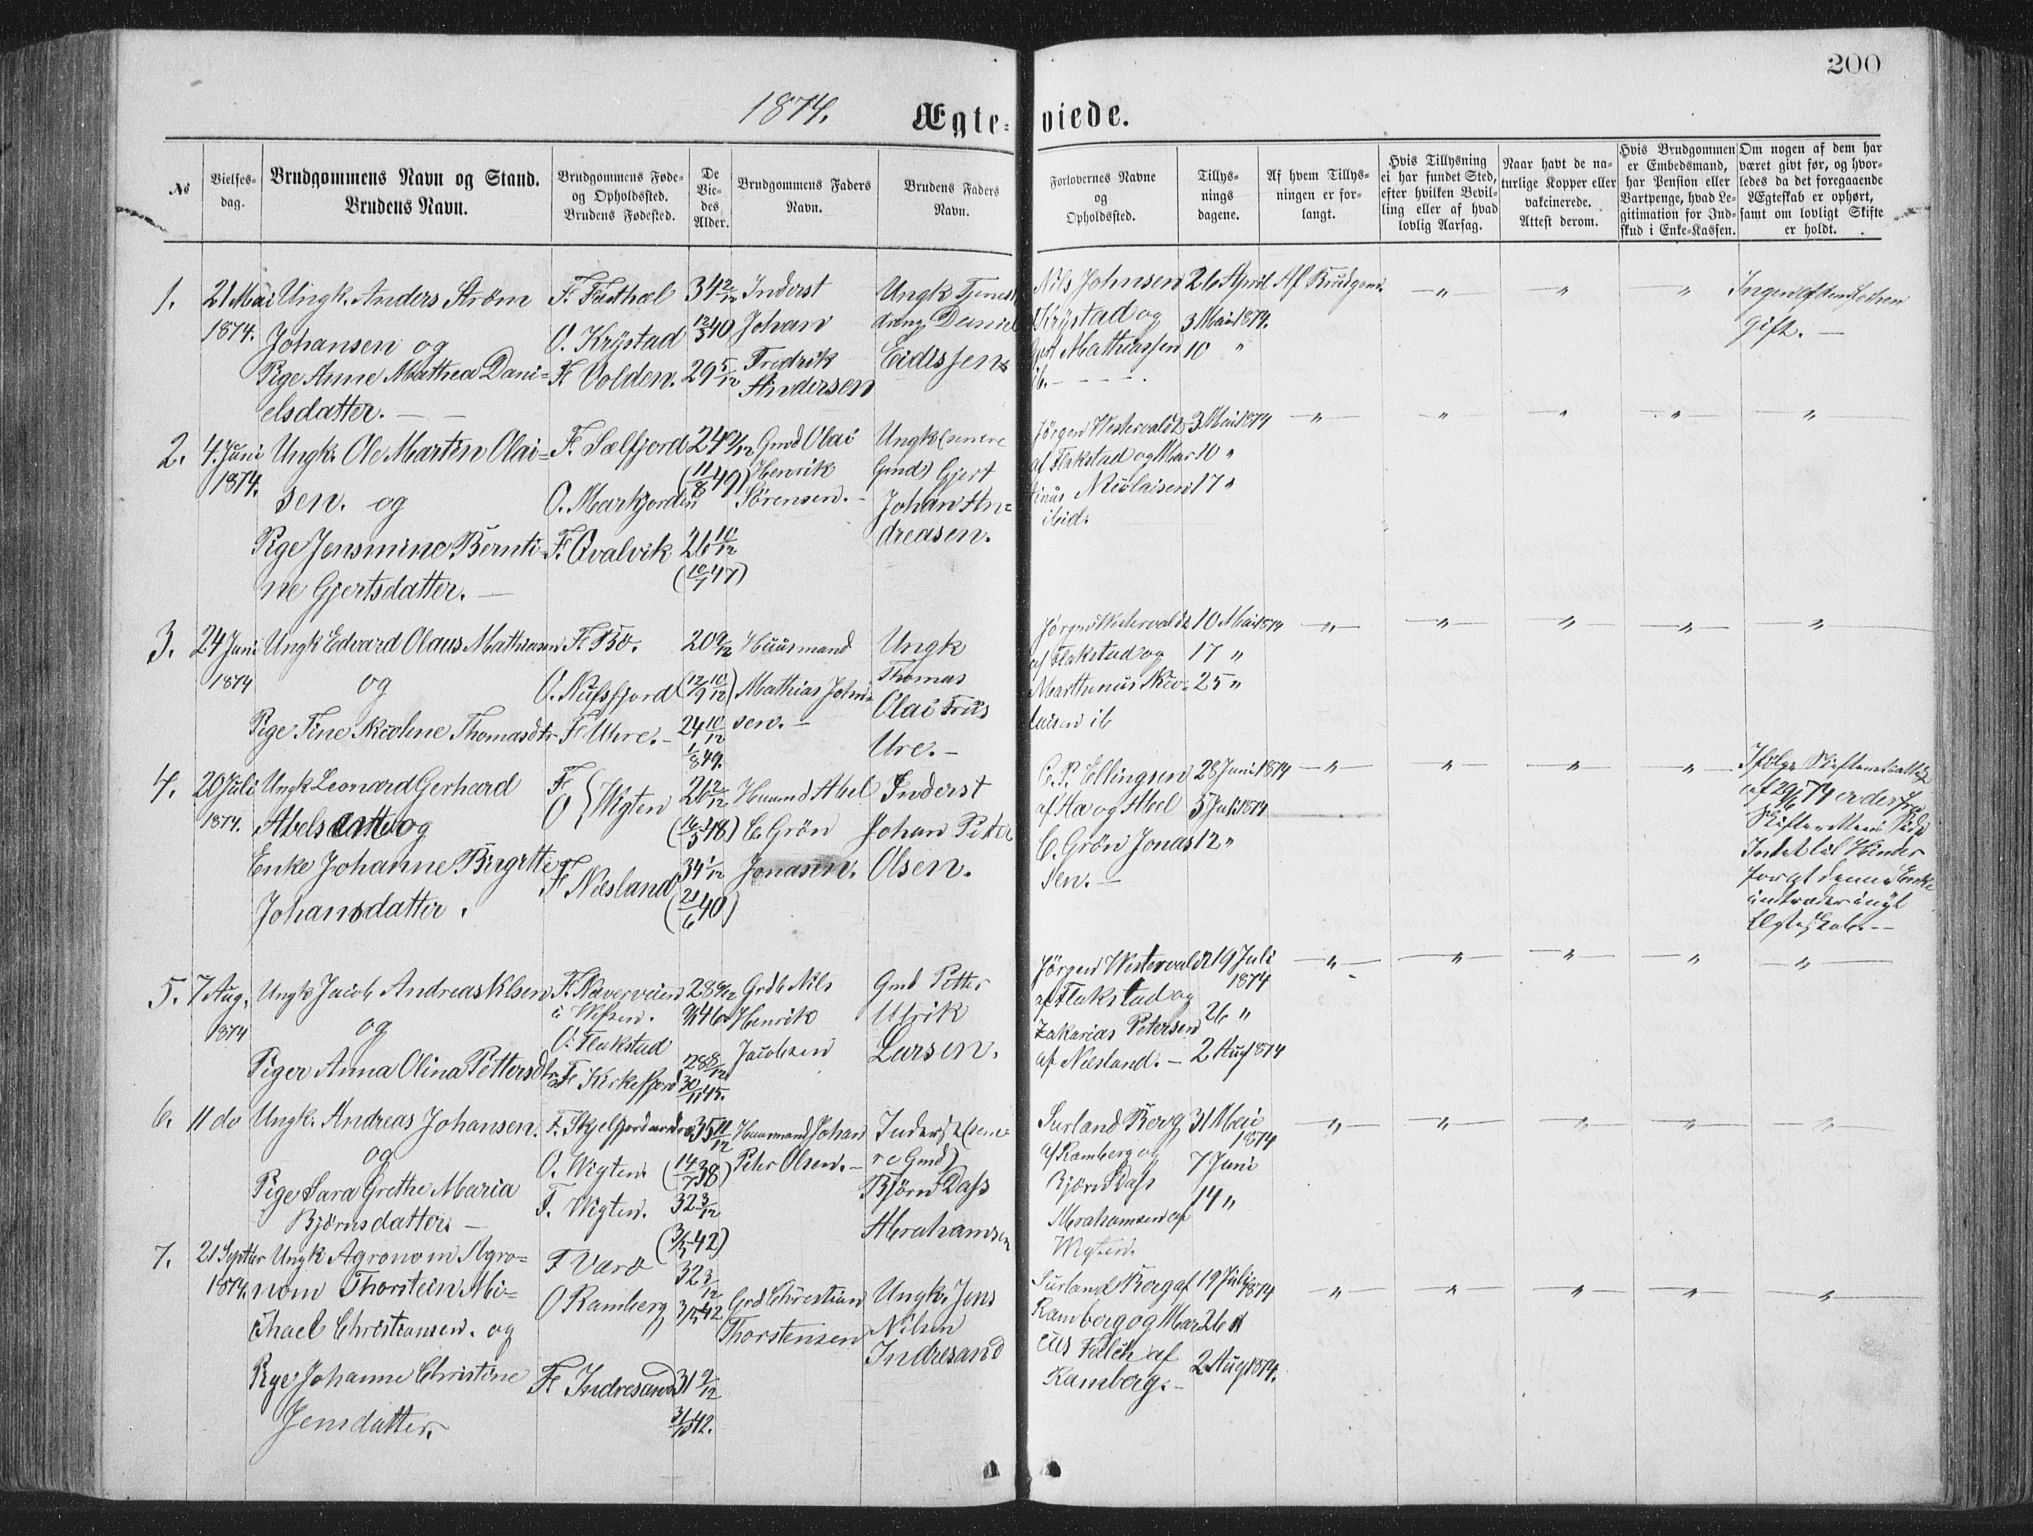 200
1874.
Ægteviede.
No
Vielses-
dag.
Brudgommens Navn og Stand.
Brudens Navn.
Brudgommens Føde-
og Opholdssted.
Brudens Fødested.
De
Vie-
des
Alder.
Brudgommens Faders
Navn.
Brudens Faders
Navn.
Forlovernes Navne
og
Opholdssted.
Tillys-
nings
dagene.
Af hvem Tillys-
ningen er for-
langt.
Hvis Tillysning
ei har fundet Sted,
efter hvilken Bevil-
ling eller af hvad
lovlig Aarsag.
Naar havt de na-
turlige Kopper eller
vakcinerede.
Attest derom.
Hvis Brudgommen
er Embedsmand,
har Pension eller
Vartpenge, hvad Le-
gitimation for Ind-
skud i Enke-Kassen.
Om nogen af dem har
været givt før, og hvor-
ledes da det foregaaende
Ægteskab er ophørt,
samt om lovligt Skifte
er holdt.
1. 21 Mai
1874.
Ungk. Anders Strøm
Johansen og
Pige Anne Mathea Dani-
elsdatter. —
O. Krystad
F. Volden.
34 2/12
12/3 40
29 5/12
Inderst
Johan
Fredrik
Andersen
Ungk Tjenest
dreng Daniel
Eidissen
Nils Johnsen
Krystad og
Mathiassen
ib.
26 April
3 Mai 1874.
10 "
Af Brudgom.
" " "
Ingen af dem
Gift. —
2. 4. Juni
1874.
Ungk. Ole Martin Olai-
sen. og
Pige Jensmine Bernti-
ne Gjertsdatter. —
F. Selfjord
O. Markjorden
F. Qvalvik
24 9/12
(11/8 49)
26 10/12
(10/7 47)
Gmd Olai
Henrik
Sørensen. —
Ungk (senere
Gmd) Gjert
Johan An-
dreasen.
Jørgen Westervald
af Flakstad og Mar
tinus Nicolaisen
ibid.
3 Mai 1874
10 "
17 "
" " " " "
3. 24 Juni
1874
Ungk Edvard Olaus Mathiasen
og
Pige Tine Nicoline Thomasdtr
F. Bø.
O. Nufsfjord
F. Uhre. —
20 9/12
24 10/12
1/8 49.
Huusmand
Mathias John-
sen. —
Ungk
Thomas
Olai Friis
Ure. —
Jørgen Westervald
af Flakstad og
Marthinus Nico-
laisen ib
10 Mai 1874
17 "
25 "
" " " " "
4. 20 Juli
1874.
Ungk Leonard Gerhard
Abels og
Enke Johanne Birgitte
Johansdatter.
F
O } Wigten
F. Næsland
26 2/12
(16/5 48)
34 1/12
(21/6 40)
Huusmd Abel
C. Grøn
Jonasen.
Inderst
Johan Peter
Olsen.
C. P. Ellingsen
af Ha og Abel
C. Grøn Jonas
sen. —
28 Juni 1874
5 Juli 1874
12 "
" " " "
Ifølge Skifteretsattest
af 29/6 74 er der fra
Skifterettens Side
Intet til Hinder
for at denne Enke
indtræder i nyt
Ægteskab. —
5. 7 Aug.
1874
Ungk Jacob Andreas Nilsen
og
Piger Anna Olina Pettersdtr
F. Næverveien
i Vefsen.
O. Flakstad
F. Kirkefjord
28 9/12
28 8/12
30/11 45.
Grdb Nils
Henrik
Jacobsen
Gmd Petter
Ulrik
Larsen.
Jørgen Westervald
af Flakstad og
Zakarias Petersen
af Næsland. —
19 Juli
1874
26 "
2 Aug 1874
" " " " "
6. 11 do
Ungk. Andreas Johansen.
og
Pige Sara Grethe Maria
Bjørnsdatter. —
F. Skjelfjord
O. Wigten.
F. Wigten.
35 11/12
(14/7 38)
32 3/12
(3/5 42)
Huusmand Johan
Peter Olsen. —
Inderst (sene
re Gmd)
Bjørn Dass
Abrahamsen
Surland Borg
af Ramberg og
Bjørn Dass
Abrahamsen af
Wigten.
31 Mai
1874
7 Juni
14 "
" " " " "
7. 21 Septbr
1874.
Ungk Agronom Agro-
nom Thorstein Mi-
chael Christiansen. og
Pige Johanne Christine
Jensdatter.
F Varø
O Ramberg
F. Indresand
32 3/12
3/5 42
31 2/12
Grd Christian
Thorstensen
Ungk. Jens
Nilsen
Indresand
Surland Borg af
Ramberg og Mar
cus Falch af
Ramberg. —
19 Juli 1874
26 "
2 Aug 1874.
" " " " "